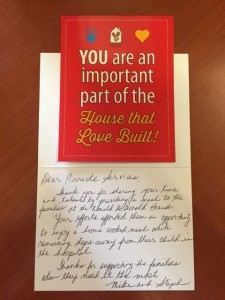 YOU are an
important
part of the
House that
Love Built!
Dear Pinnacle Services,
Thank you for sharing your time
and talents by providing a meal to the
families at the Ronald McDonald House.
Your efforts afforded them an opportunity
to enjoy a home cooked meal while
remaining steps away from their child in
the hospital.
Thanks for supporting the families
when they need it the most.
Mike and Steph